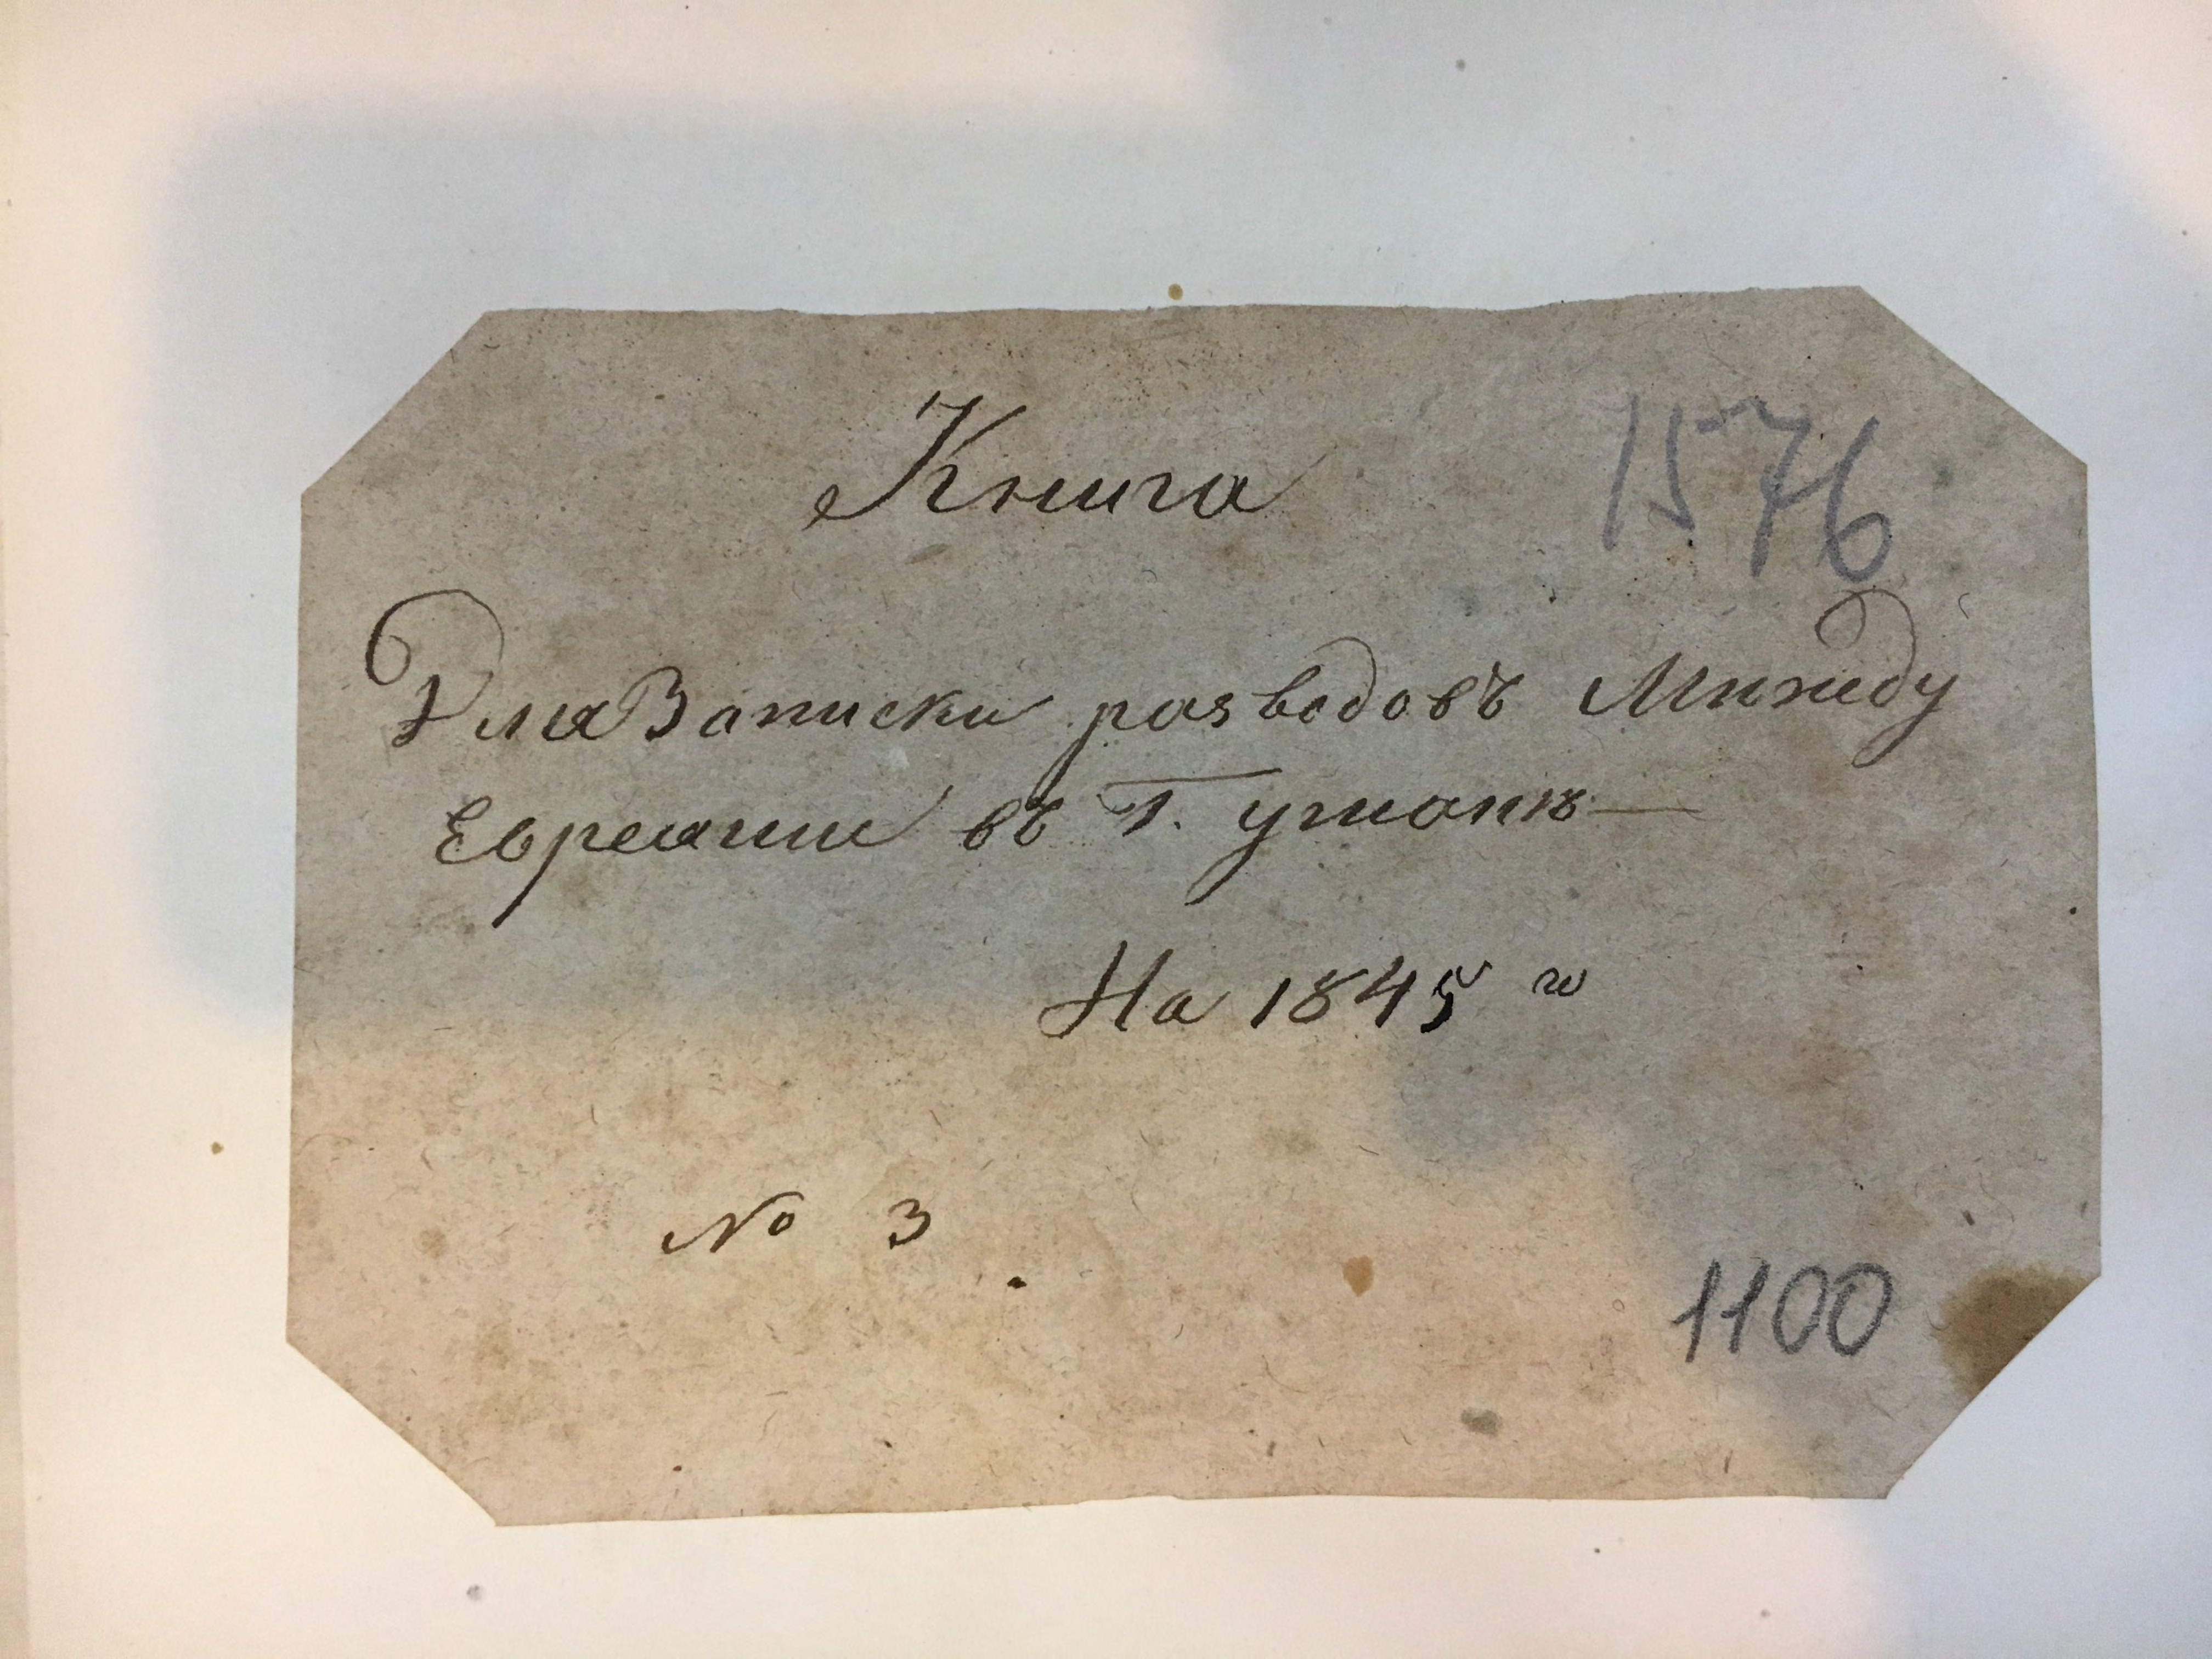 Книга
1576
Для Записки разводовъ Мѣжду
Евреями въ Г. Умани
На 1845 го
No 3
1100